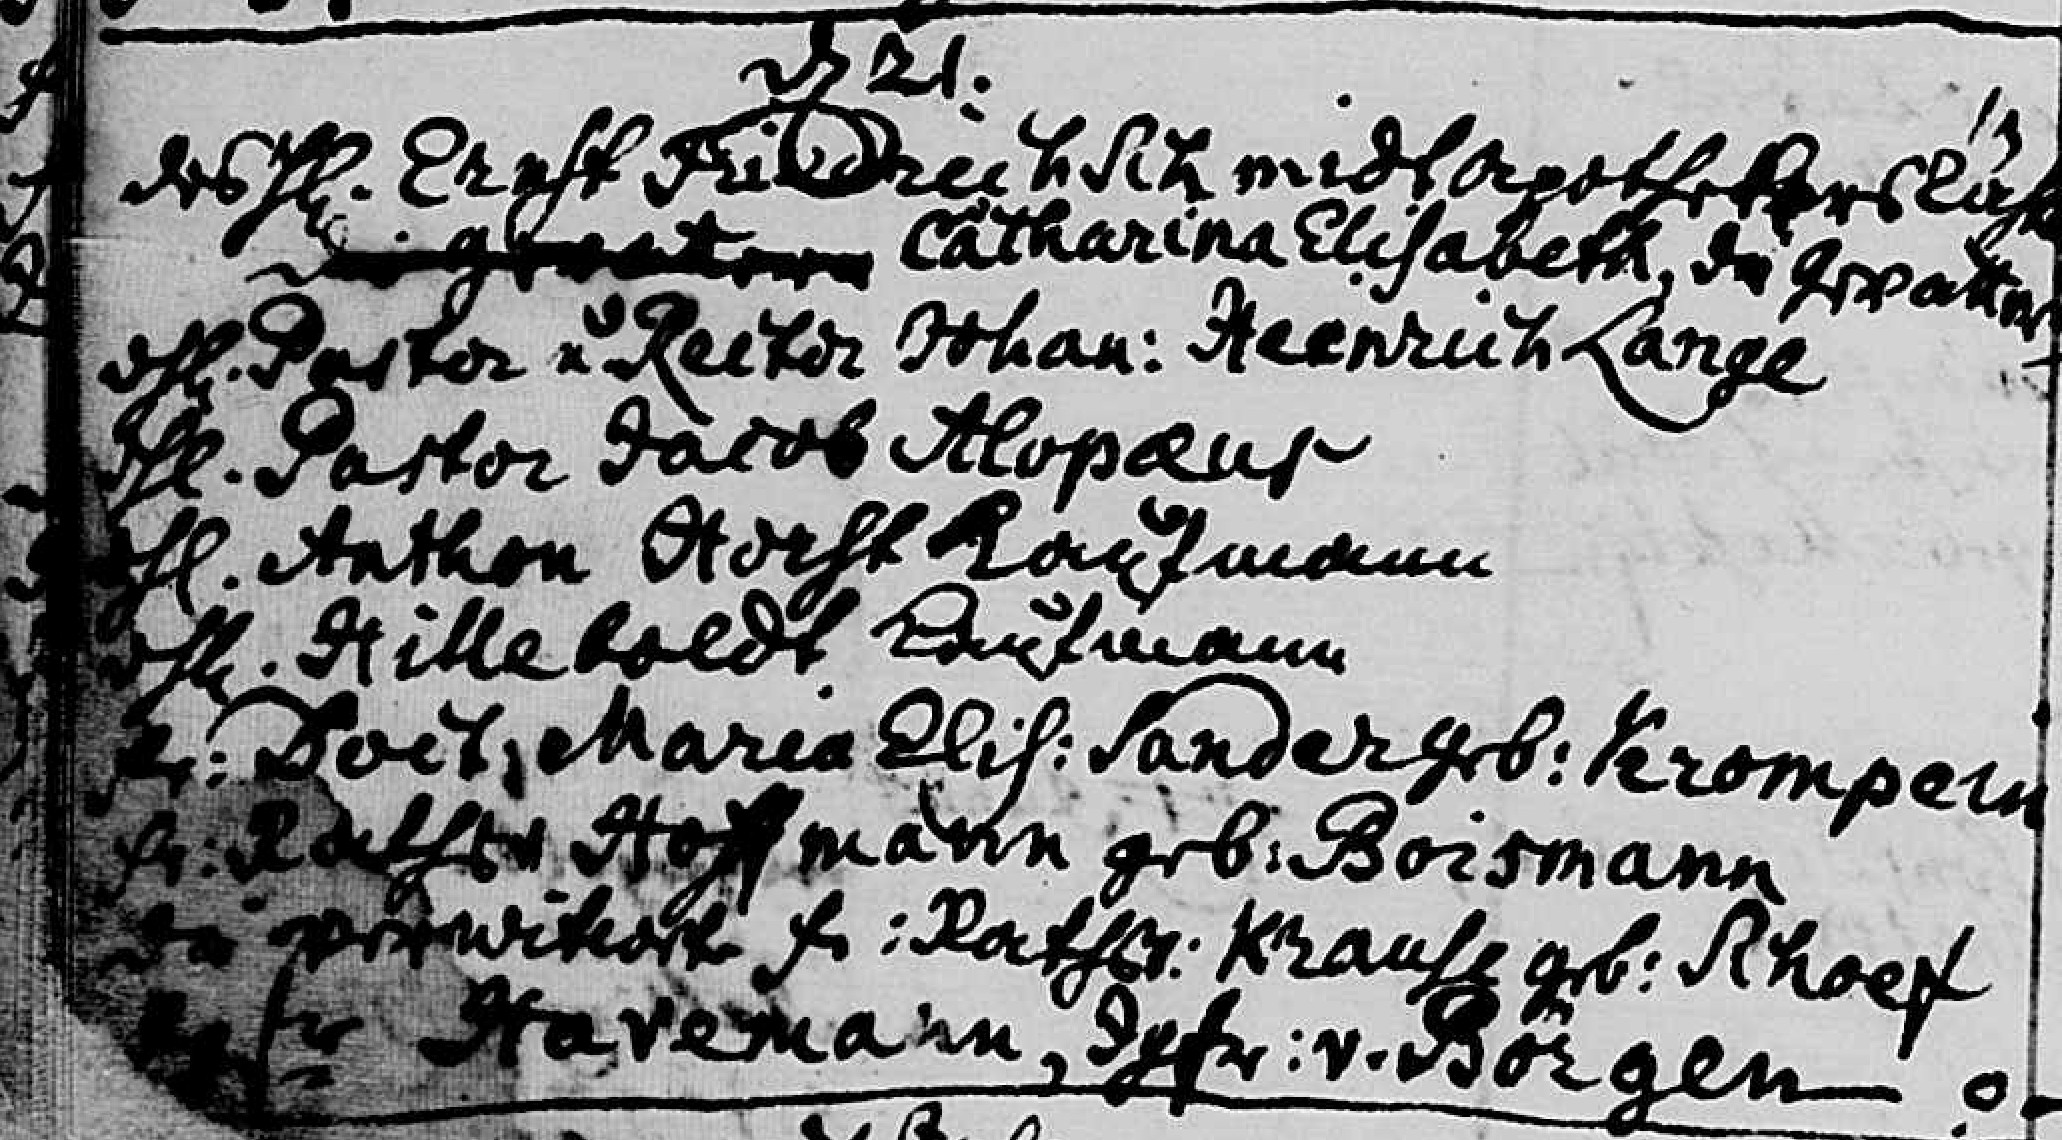 d 21.
des H. Ernst Friedrich Schmidt Apothekers
Catharina Elisabeth, die Gevattern
H. Pastor ü Rector Johan: Heinrich Lange
H. Pastor Jacob Alopæus
H. Anthon Horst Kaufmann
H. Hilleboldt Kaufmann
Fr: Doct: Maria Elis: Sander geb: Krompein
Fr: Rathsv Hoffmann geb: Boismann
die verwitwete Fr: Rathsv: Krause geb: Schoef
Jgfr Havemann, Jgfr: v. Börgen